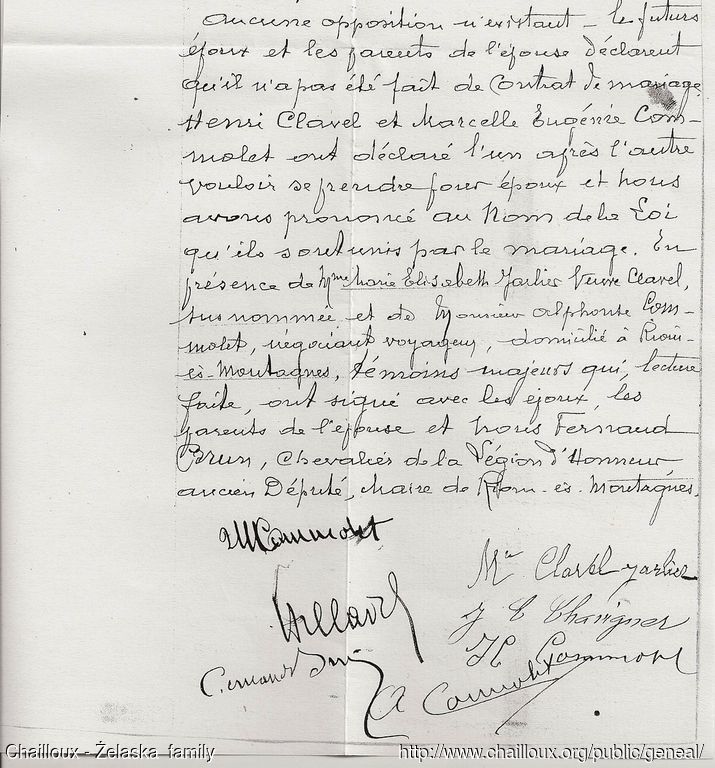 Aucune opposition n'existant - les futurs
époux et les parents de l'épouse déclarent
qu'il n'a pas été fait de Contrat de mariage
Henri Clavel et Marcelle Eugénie Com-
molet ont déclaré l'un après l'autre
vouloir se prendre pour époux et nous
avons prononcé au Nom de la Loi
qu'ils sont unis par le mariage. En
présence de Mme Marie Elisabeth Jarlier Veuve Clavel,
sus nommée et de Monsieur Alphonse Com-
molet, négociant voyageur, domicilié à Riom-
ès-Montagnes, témoins majeurs qui, lecture
faite, ont signé avec les époux, les
parents de l'épouse et nous Fernand
Brun, Chevalier de la Légion d'Honneur,
ancien Député, Maire de Riom-ès-Montagnes.
Clavel Jarlier
Chailloux - Želaska family
http://www.chailloux.org/public/geneal/